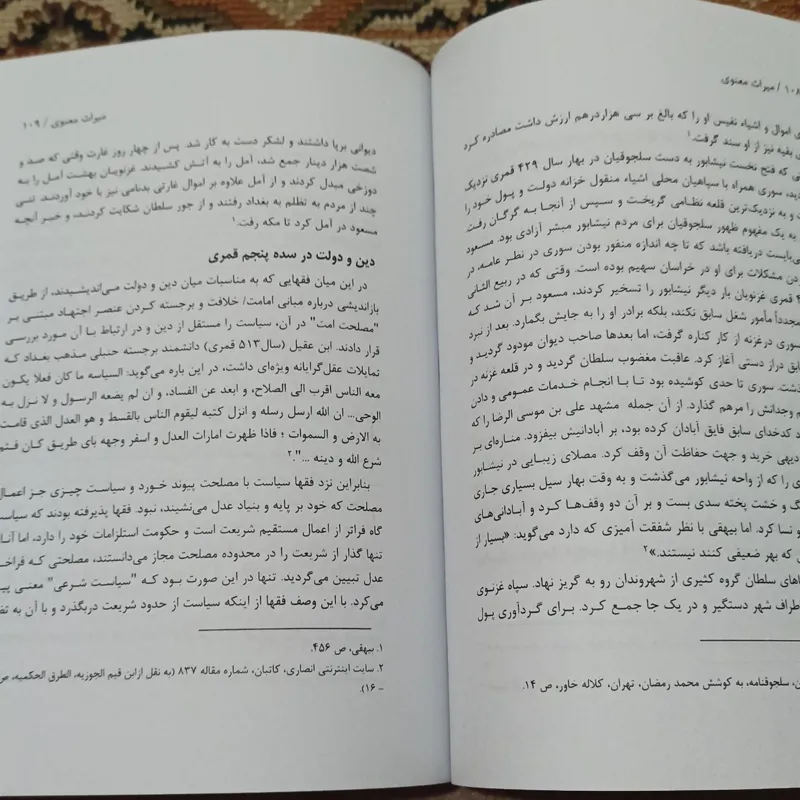 ۱۰۸ / میراث معنوی
اموال و اشیاء نفیس او را که بالغ بر سی هزاردرهم ارزش داشت مصادره کرد
بقیه نیز از او سند گرفت.۱
که فتح نخست نیشابور به دست سلجوقیان در بهار سال ۴۲۹ قمری نزدیک
سوری همراه با سپاهیان محلی اشیاء منقول خزانه دولت و پول خود را
و به نزدیک‌ترین قلعه نظامی گریخت و سپس از آنجا به گرگان رفت.
به یک مفهوم ظهور سلجوقیان برای مردم نیشابور مبشر آزادی بود. مسعود
می‌بایست دریافته باشد که تا چه اندازه منفور بودن سوری در نظر عامه، در
کردن مشکلات برای او در خراسان سهیم بوده است. وقتی که در ربیع الثانی
قمری غزنویان بار دیگر نیشابور را تسخیر کردند، مسعود بر آن شد که
مجدداً مأمور شغل سابق نکند، بلکه برادر او را به جایش بگمارد. بعد از نبرد
سوری درغزنه از کار کناره گرفت، اما بعدها صاحب دیوان مودود گردید و
دراز دستی آغاز کرد. عاقبت مغضوب سلطان گردید و در قلعه غزنه در
سوری تا حدی کوشیده بود تا با انجام خدمات عمومی و دادن
وجدانش را مرهم گذارد. از آن جمله مشهد علی بن موسی الرضا را که
کدخدای سابق فایق آبادان کرده بود، بر آبادانیش بیفزود. مناره‌ای بر
دیهی خرید و جهت حفاظت آن وقف کرد. مصلای زیبایی در نیشابور
را که از واحه نیشابور می‌گذشت و به وقت بهار سیل بسیاری جاری
و خشت پخته سدی بست و بر آن دو وقف‌ها کرد و آبادانی‌های
و نسا کرد. اما بیهقی با نظر شفقت آمیزی که دارد می‌گوید: «بسیار از
که بهر ضعیفی کنند نیستند.»۲
سلطان گروه کثیری از شهروندان رو به گریز نهاد. سپاه غزنوی
اطراف شهر دستگیر و در یک جا جمع کرد. برای گردآوری پول
سلجوقنامه، به کوشش محمد رمضان، تهران، کلاله خاور، ص ۱۴.
میراث معنوی / ۱۰۹
دیوانی برپا داشتند و لشکر دست به کار شد. پس از چهار روز غارت وقتی که صد و
شصت هزار دینار جمع شد، آمل را به آتش کشیدند. غزنویان بهشت آمل را به
دوزخی مبدل کردند و از آمل علاوه بر اموال غارتی بدنامی نیز با خود آوردند. تنی
چند از مردم به تظلم به بغداد رفتند و از جور سلطان شکایت کردند، و خبر آنچه
مسعود در آمل کرد تا مکه رفت.۱
دین و دولت در سده پنجم قمری
در این میان فقهایی که به مناسبات میان دین و دولت می‌اندیشیدند، از طریق
بازاندیشی درباره مبانی امامت/ خلافت و برجسته کردن عنصر اجتهاد مبتنی بر
"مصلحت امت" در آن، سیاست را مستقل از دین و در ارتباط با آن مورد بررسی
قرار دادند. ابن عقیل (سال۵۱۳ قمری) دانشمند برجسته حنبلی مذهب بغداد که
تمایلات عقل‌گرایانه ویژه‌ای داشت، در این باره می‌گوید: السیاسه ما کان فعلا یکون
معه الناس اقرب الی الصلاح، و ابعد عن الفساد، و ان لم یضعه الرسول و لا نزل به
الوحی... ان الله ارسل رسله و انزل کتبه لیقوم الناس بالقسط و هو العدل الذی قامت
به الارض و السموات ؛ فاذا ظهرت امارات العدل و اسفر وجهه بای طریق کان فثم
شرع الله و دینه ...".۲
بنابراین نزد فقها سیاست با مصلحت پیوند خورد و سیاست چیزی جز اعمال
مصلحت که خود بر پایه و بنیاد عدل می‌نشیند، نبود. فقها پذیرفته بودند که سیاست
گاه فراتر از اعمال مستقیم شریعت است و حکومت استلزامات خود را دارد، اما
تنها گذار از شریعت را در محدوده مصلحت مجاز می‌دانستند، مصلحتی که
عدل تبیین می‌گردید. تنها در این صورت بود که "سیاست شرعی" معنی
می‌کرد. با این وصف فقها از اینکه سیاست از حدود شریعت دربگذرد و با آن به
۱. بیهقی، ص ۴۵۶.
۲. سایت اینترنتی انصاری، کاتبان، شماره مقاله ۸۳۷ (به نقل ازابن قیم الجوزیه، الطرق الحکمیه، ص
– ۱۶).